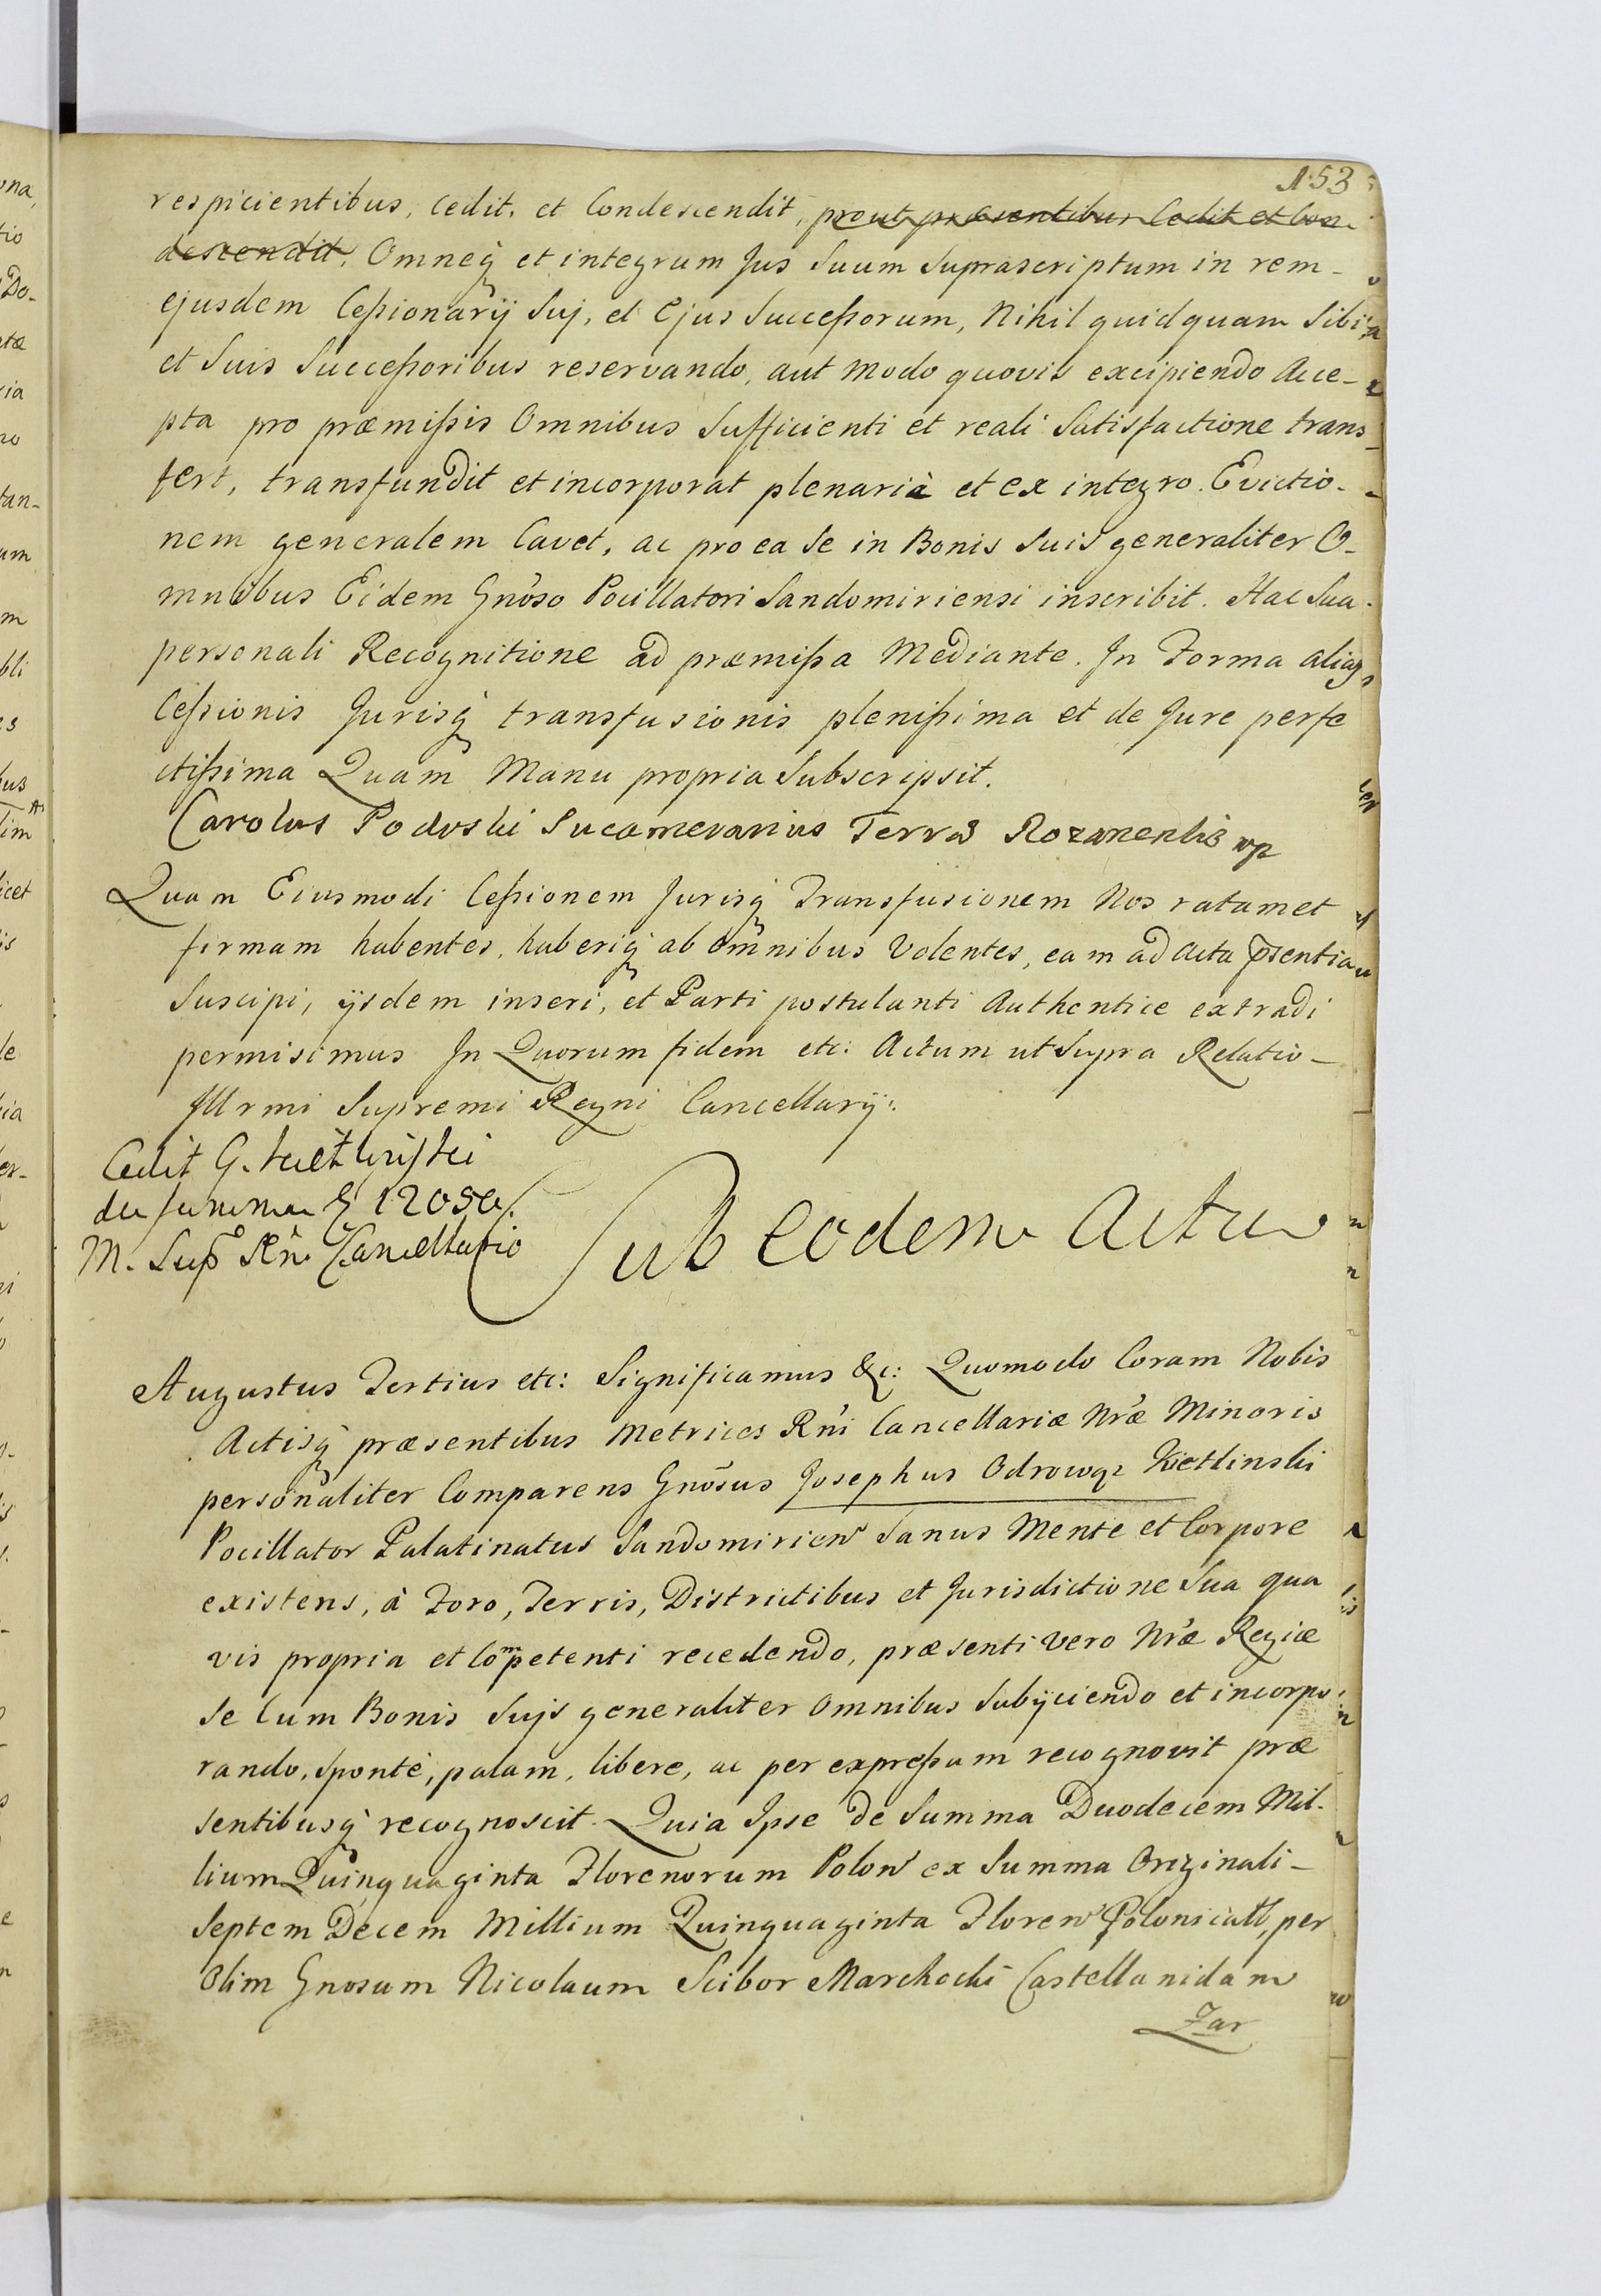 153
respicientibus, cedit, et Condescendit, prout præsentibus Cedit et Con-
descendit, Omneq̀ et integrum Jus Suum Suprascriptum in rem-
ejusdem Ceßionarij Suj, et Ejus Succeßorum, Nihil quidquam Sibi
et Suis Succeßoribus reservando, aut Modo quovis excipiendo Acce-
pta pro præmißis Omnibus Sufficienti et reali Satisfactione trans-
fert, transfundit et incorporat plenariè et ex integro. Evictio-
nem generalem Cavet, ac pro ea Se in Bonis Suis generaliter O-
mnibus Eidem Gnoso Pocillatori Sandomiriensi inscribit. Hac Sua
personali Recognitione ad præmißa Mediante. In Forma aliàs
Ceßionis Jurisq̀ transfusionis plenißima et de Jure perfe
ctißima Quam Manu propria Subscripsit.
Carolus Podoski Sucamerarius Terræ Rozanensis mp
Quam Eiusmodi Ceßionem Jurisq̀ Transfusionem Nos ratam et
firmam habentes, haberiq̀ ab omnibus Volentes, eam ad Acta p̄sentia
Suscipi, ijsdem inseri, et Parti postulanti Authentice extradi
permisimus In Quorum fidem etc: Actum ut Supra Relatio-
Illrmi Supremi Regni Cancellarij:
Cedit G.
de summa 12050.
M. Sup Rñi Cancellario
Sub eodem Actu
Augustus Tertius etc: Significamus &c: Quomodo Coram Nobis
Actisq̀ præsentibus Metrices Rñi Cancellariæ Nræ Minoris
personaliter Comparens Gnōsus Josephus Odrowąz Kietlinski
Pocillator Palatinatus Sandomirien Sanus Mente et Corpore
existens, à Foro, Terris, Districtibus et Jurisdictione Sua qua
vis propria et Competenti recedendo, præsenti vero Nræ Regiæ
Se Cum Bonis Sujs generaliter Omnibus Subijciendo et incorpo
rando, Sponte, palam, libere, ac per expreßum recognovit præ
sentibusq̀ recognoscit. Quia Ipse de Summa Duodecem Mil-
lium Quinquaginta Florenorum Polon ex Summa Originali-
Septem Decem Millium Quinquaginta Floren Polonicall, per
Olim Gnosum Nicolaum Scibor Marchocki Castellanidam
Zar